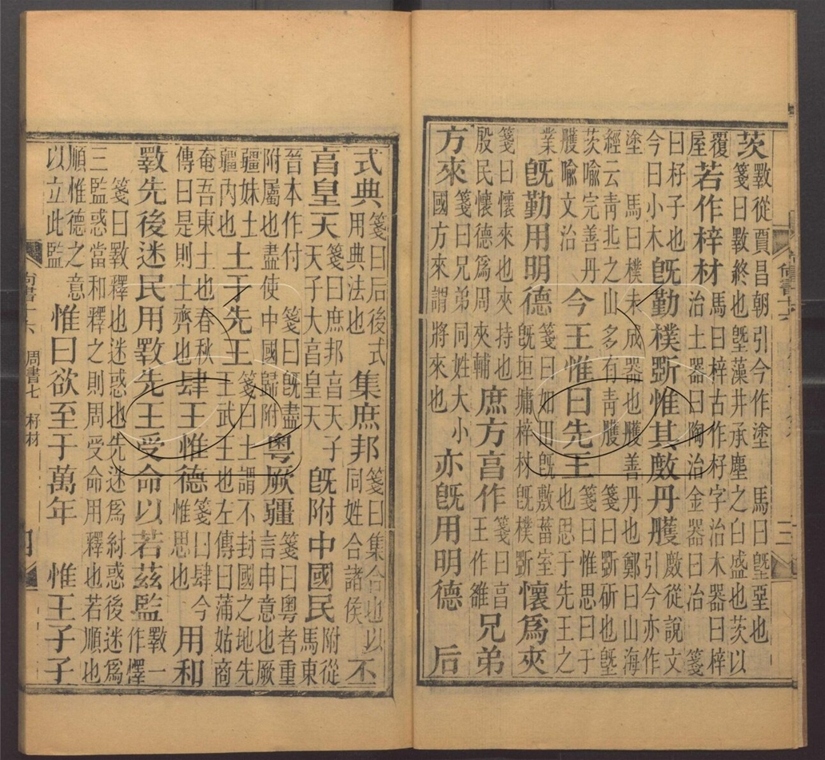 茨斁從賈昌朝引今作塗　馬曰塈堊也
箋曰斁終也塈藻井承塵之白盛也茨以
覆屋若作梓材馬曰梓古作杍字治木器曰梓
治土器曰陶治金器曰冶　箋
曰杍子也
今曰小木既勤樸斲惟其斁丹雘斁從說文
引今亦作
塗　馬曰樸未成器也雘善丹也鄭曰山海
經云青丘之山多有青雘　箋曰斲斫也塈
茨喻完善丹
雘喻文治　今王惟曰先王箋曰惟思曰于
也思于先王之
業　既勤用明德箋曰如用既敷菑室
既垣墉梓材既樸斲懷爲夾
箋曰懷來也夾持也
殷民懷德爲周夾輔庶方亯作箋曰亯
王作雒兄弟
方來箋曰兄弟同姓大小
國方來謂將來也亦既用明德　后
式典箋曰后後式
用典法也集庶邦箋曰集合也以
同姓合諸侯丕
亯皇天箋曰庶邦亯天子
天子大亯皇天既附中國民附從
馬東
晉本作付　箋曰既盡
附屬也盡使中國歸附粵厥疆箋曰粵者重
言申意也厥
疆妹土
疆内也土于先王箋曰土謂不封國之地先
王武王也左傳曰蒲姑商
奄吾東土也春秋
傳曰是則土齊也肆王惟德箋曰肆今
惟思也用和
斁先後迷民用斁先王受命以若茲監斁一
作懌
箋曰斁釋也迷惑也先迷爲紂惑後迷爲
三監惑當和釋之則周受命用釋也若順也
順惟德之意
以立此監惟曰欲至于萬年　惟王子子
尚書十六　周書七　杍材